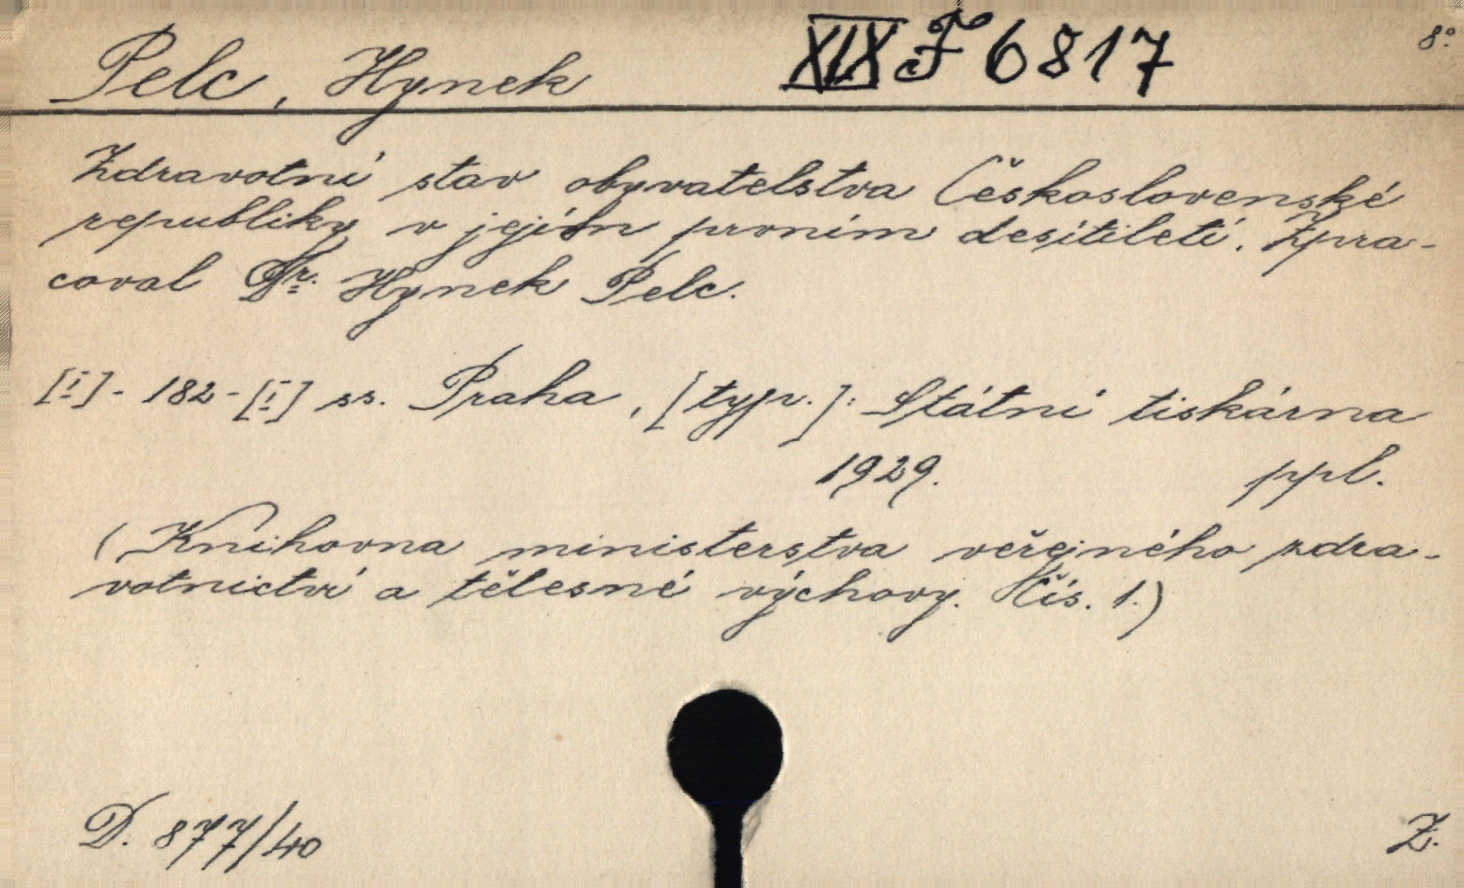 Pelc, Hynek XIX F 6817 8°.
Zdravotní stav obyvatelstva Československé
republiky v jejím prvním desítiletí. Zpra-
coval Dr. Hynek Pelc.
[I] - 182 - [I] ss. Praha, [typ.]: Státní tiskárna
1929. ppl.
(Knihovna ministerstva veřejného zdra-
votnictví a tělesné výchovy. Čís. 1.)
D. 877/40 Z.